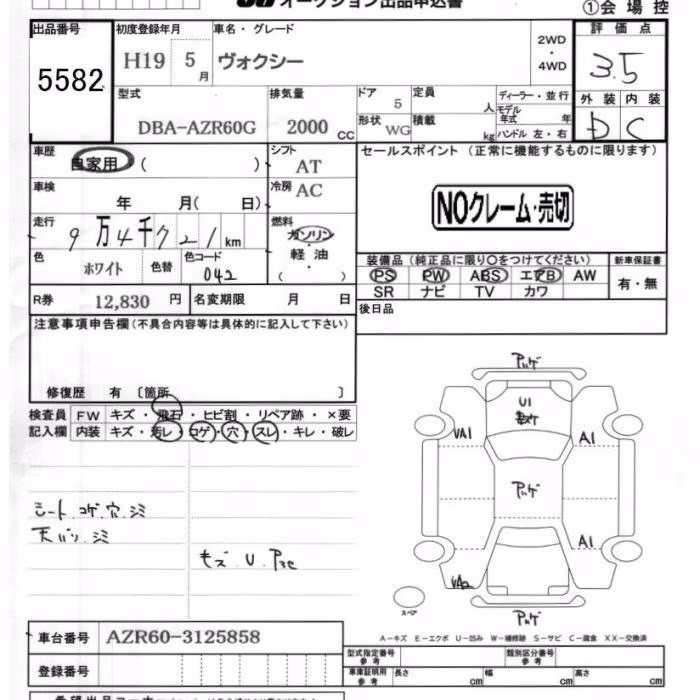 オークション出品申込書 ①会場控
出品番号 初度登録年月 車名・グレード 評価点
5582 H19 5月 ヴォクシー 2WD・4WD 3.5
型式 排気量 ドア 定員 ディーラー・並行 外装 内装
DBA-AZR60G 2000 CC 5 人 モデル年式 年 D C
形状 WG 積載 kg ハンドル 左・右
車歴 自家用 ( ) シフト AT セールスポイント (正常に機能するものに限ります)
車検 年 月( 日) 冷房 AC
NOクレーム・売切
走行 9万4千721km 燃料 ガソリン
軽油
( )
色 ホワイト 色替 色コード 042
装備品 (純正品に限り○をつけてください) 新車保証書
PS PW ABS エアB AW 有・無
SR ナビ TV カワ
R券 12,830 円 名変期限 月 日 後日品
注意事項申告欄(不具合内容等は具体的に記入して下さい)
修復歴 有 〔箇所 〕
検査員 FW キズ・飛石・ヒビ割・リペア跡・×要
記入欄 内装 キズ・汚レ・コゲ・穴・スレ・キレ・破レ
シート コゲ.穴.シミ
天バリ.シミ
キズ.U.
U1
VA1 A1
A1
VA2
スペア
A−キズ E−エクボ U−凹み W−補修跡 S−サビ C−腐食 XX−交換済
車台番号 AZR60-3125858
型式指定番号 参考 類別区分番号 参考
登録番号 車庫証明用 参考 長さ cm 幅 cm 高さ cm